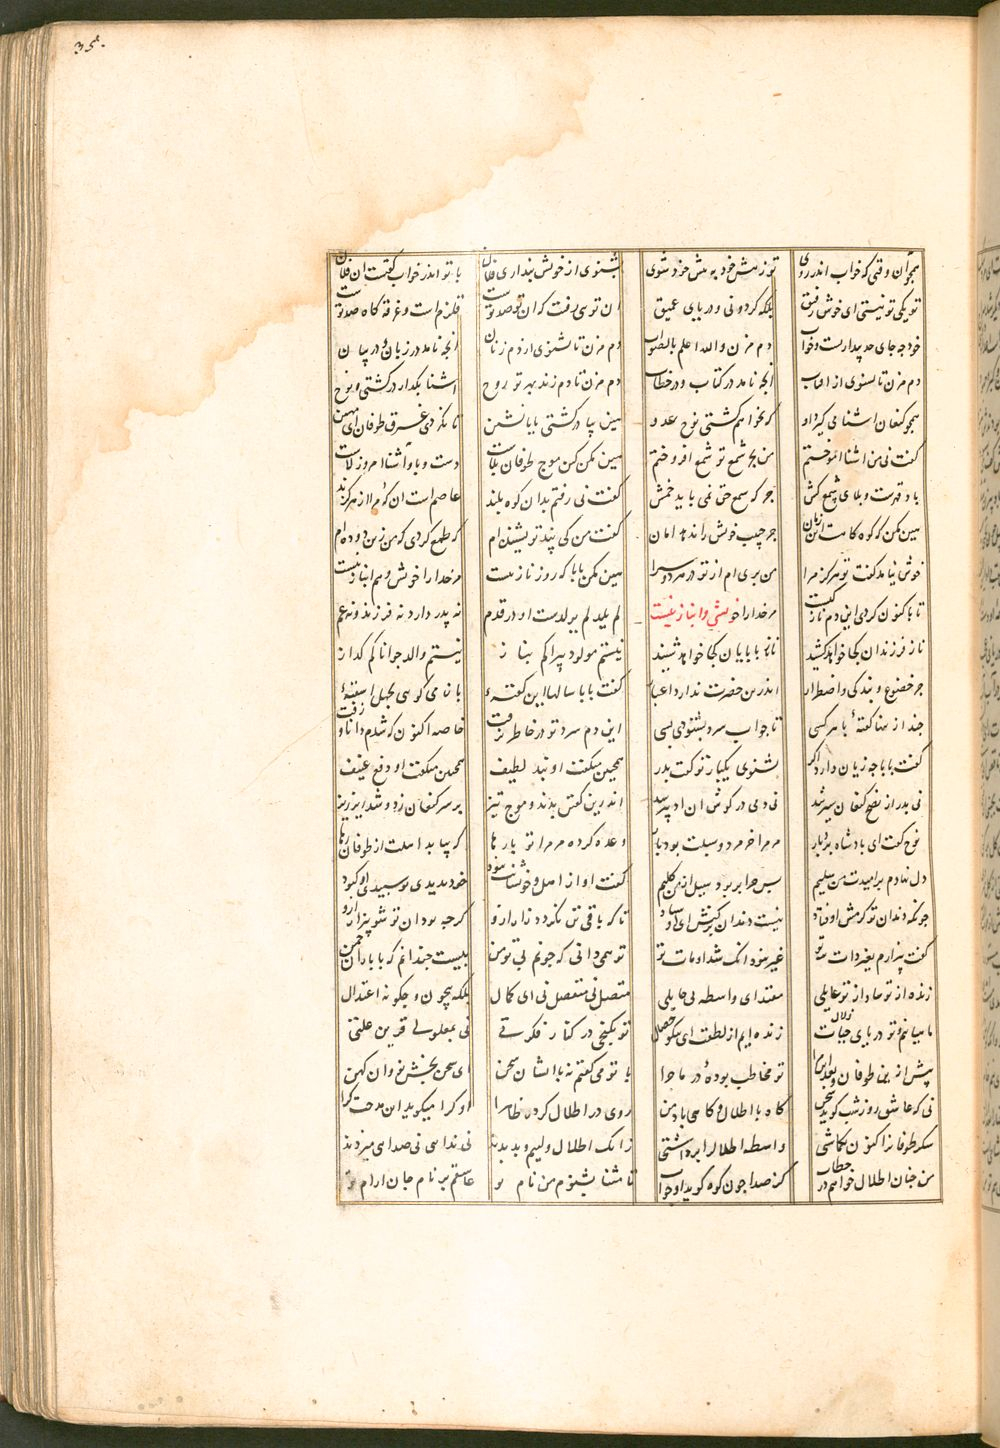 35.
همچو آن وقتی که خواب اندر روی تو ز پیش خود به پیش خود شوی بشنوی از خویش پنداری فلان با تو اندر خواب گفتست ان نهان
تو یکی تو نیستی ای خوش رفیق بلکه گردونی و دریای عمیق ان توی زفت که ان نهصد توست قلزم است و غرقه گاه صد توست
خود چه جای حد بیدارست و خواب دم مزن والله اعلم بالصواب دم مزن تا بشنوی از دم زنان انچه نامد در زبان و در بیان
دم مزن تا بشنوی از افتاب انچه نامد در کتاب و در خطاب دم مزن تا دم زند بهر تو روح اشنا بگذار در کشتی نوح
همچو کنعان اشنا می کرد او که نخواهم کشتی نوح عدو هین بیا در کشتی بابا نشین تا نگردی غرق طوفان ای مهین
گفت نی من اشنا اموختم من بجز شمع تو شمع افروختم هین مکن کین موج طوفان بلاست دست و پا و اشنا امروز لاست
باد قهرست و بلای شمع کش جز که شمع حق نمی باید خمش گفت نی رفتم بدان کوه بلند عاصم است ان که مرا از هر گزند
هین مکن که کوه کاهست این زمان جز حبیب خویش را ندهد امان گفت من کی پند تو بشنیده ام که طمع کردی که من زین دوده ام
خوش نیامد گفت تو هرگز مرا من بری ام از تو در هر دو سرا هین مکن بابا که روز ناز نیست مر خدا را خویش و هم انباز نیست
تا باکنون کردی این دم نازکیست مر خدا را خویشی و انباز نیست لم یلد لم یولدست او در قدم نه پدر دارد نه فرزند و نه عم
ناز فرزندان کجا خواهد کشید ناز بابایان کجا خواهد شنید نیستم مولود پیرا کم بناز نیستم والد جوانا کم گداز
جز خضوع و بندگی و اضطرار اندرین حضرت ندارد اعتبار گفت بابا سالها این گفتهٔ باز می گوئی بجهل اشفتهٔ
چند ازینها گفتهٔ با هر کسی تا جواب سرد بشنودی بسی این دم سرد تو در خاطر نرفت خاصه اکنون که شدم دانا و زفت
گفت بابا چه زیان دارد اگر بشنوی یکبار تو گفت پدر همچنین میگفت او پند لطیف همچنان میگفت او دفع عنیف
نی پدر از نصح کنعان سیر شد نی دمی در گوش ان ادبیر شد اندرین گفتن بدند و موج تیز بر سر کنعان زد و شد ریز ریز
نوح گفت ای پادشاه بردبار مر مرا خر مرد و سیلت برد بار وعده کردی مر مرا تو بارها که بیابد اهلت از طوفان رها
دل نهادم بر امیدت من سلیم پس چرا بربود سیل از من گلیم گفت او از اهل و خویشانت نبود خود ندیدی تو سپیدی او کبود
چونکه دندان تو کرمش اوفتاد نیست دندان بر کنش ای اوستاد تا که باقی تن نگردد زار ازو گرچه بود ان تو شو بیزار ازو
گفت بیزارم بغیر ذات تو غیر نبود انک شد او مات تو تو همی دانی که چونم با تو من بیست چندانم که با باران چمن
زنده از تو شاد از تو عایلی مغتذی بی واسطه بی حایلی متصل نی منفصل نی ای کمال بلکه بیچون و چگونه اعتدال
ماهیانیم و تو دریای حیات زنده ایم از لطفت ای نیکو صفات تو نگنجی در کنار فکرتی نی بمعلولی قرین علتی
پیش ازین طوفان و بعد این مرا تو مخاطب بودهٔ در ماجرا با تو می گفتم نه با ایشان سخن ای سخن بخش نو و ان کهن
نی که عاشق روز و شب گوید سخن گاه با اطلال و گاهی با دمن روی در اطلال کرده ظاهرا او کرا میگوید ان مدحت کرا
شکر طوفان را کنون بگماشتی واسطه اطلال را برداشتی زانک اطلال و لئیم و بد بدند نی ندایی نی صدایی میزدند
من چنان اطلال خواهم در خطاب کز صدا چون کوه گوید او جواب تا مثنا بشنوم من نام تو عاشقم بر نام جان ارام تو